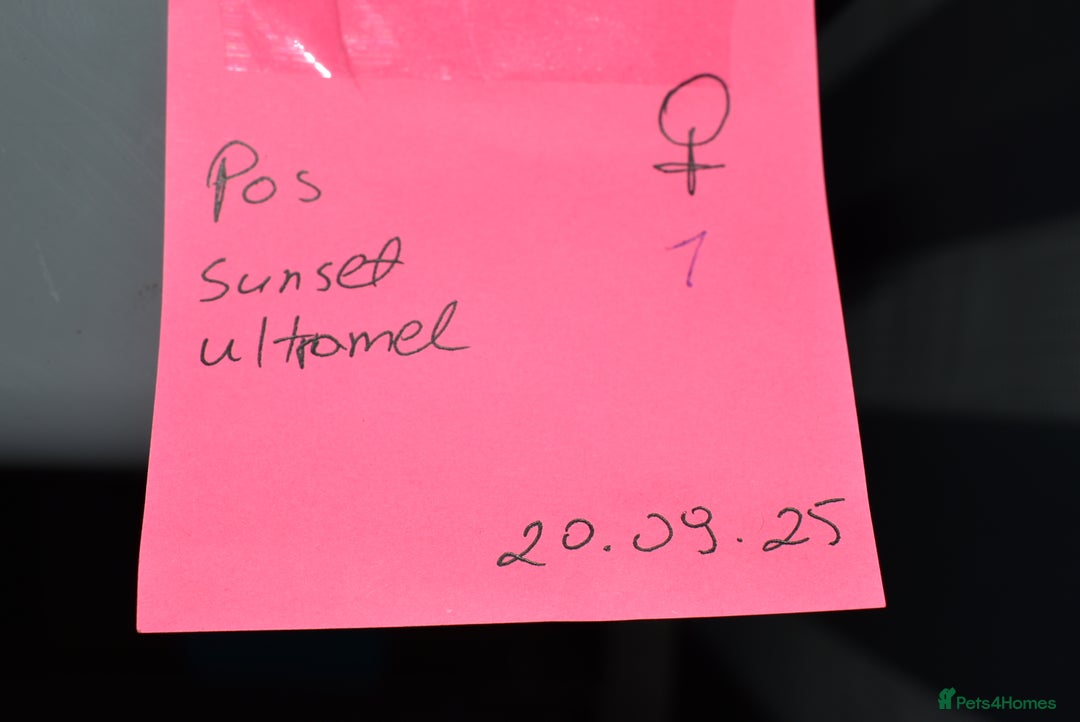 Pos ♀
sunset 1
ultramel
20.09.25
Pets4Homes